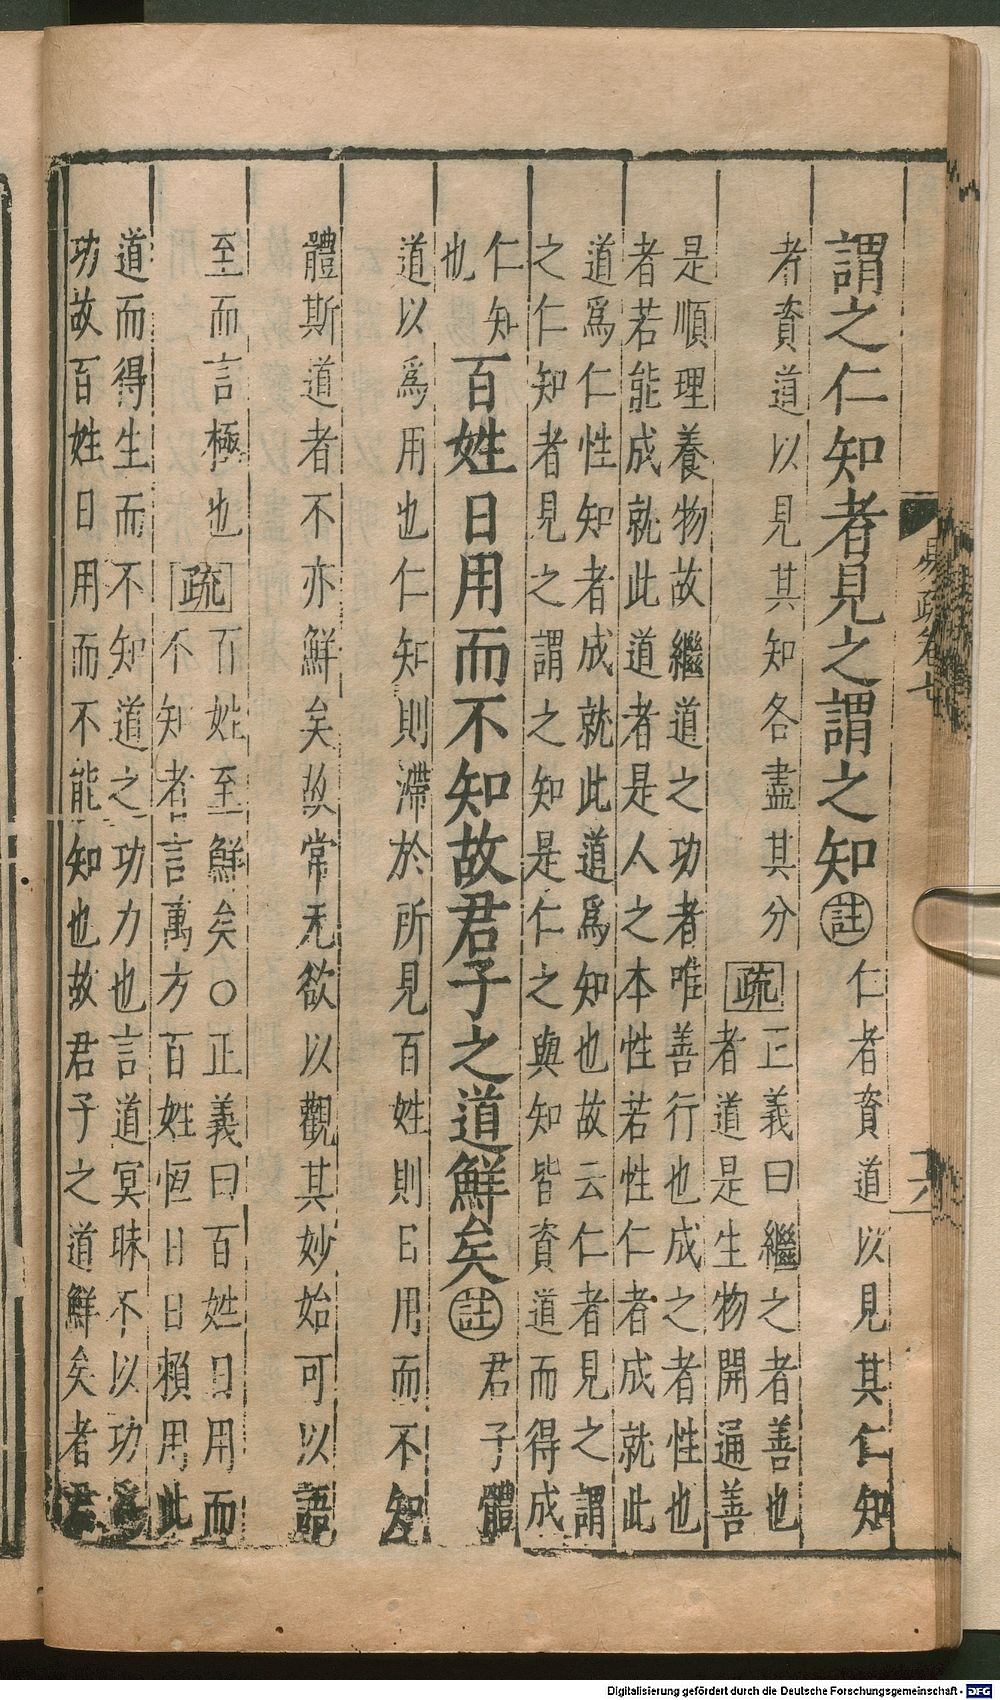 易疏卷七
謂之仁知者見之謂之知註仁者資道以見其仁知
者資道以見其知各盡其分疏正義曰繼之者善也
者道是生物開通善
是順理養物故繼道之功者唯善行也成之者性也
者若能成就此道者是人之本性若性仁者成就此
道爲仁性知者成就此道爲知也故云仁者見之謂
之仁知者見之謂之知是仁之與知皆資道而得成
仁知
也
百姓日用而不知故君子之道鮮矣註君子體
道以爲用也仁知則滯於所見百姓則日用而不知
體斯道者不亦鮮矣故常无欲以觀其妙始可以語
至而言極也疏百姓至鮮矣○正義曰百姓日用而
不知者言萬方百姓恒日日賴用此
道而得生而不知道之功力也言道冥昧不以功爲
功故百姓日用而不能知也故君子之道鮮矣者君
Digitalisierung gefördert durch die Deutsche Forschungsgemeinschaft - DFG